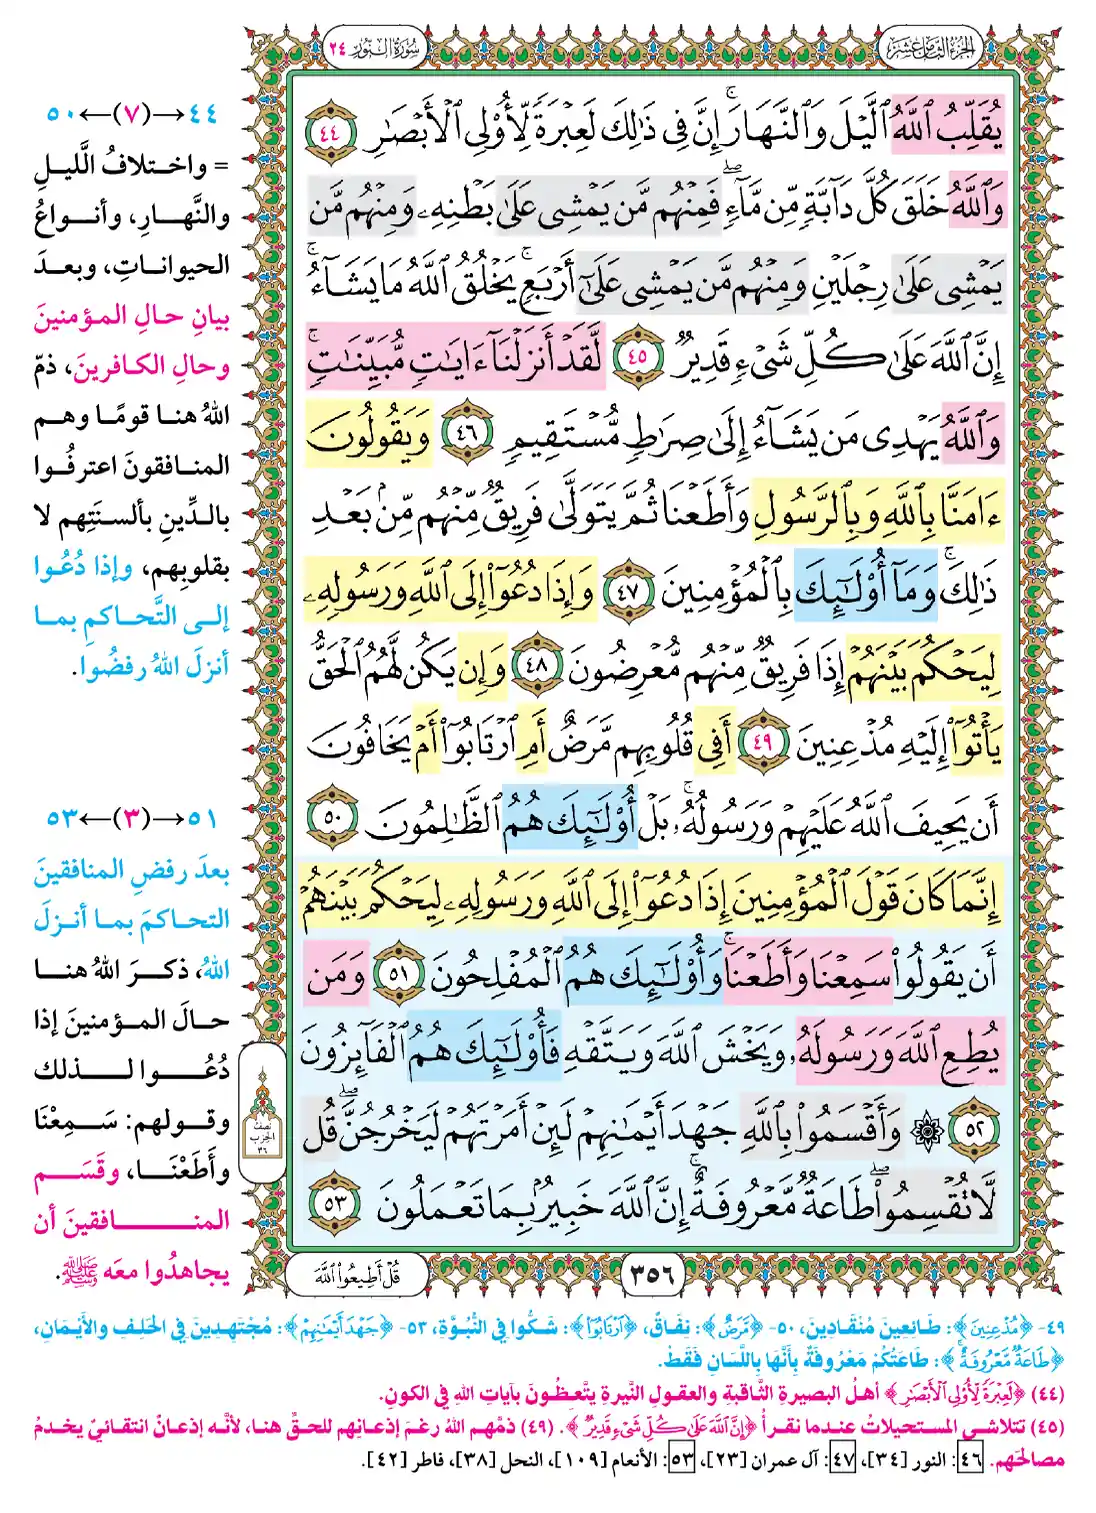 سُورَةُ النُّورِ ٢٤
الجُزءُ الثَّامِنَ عَشَرَ
يُقَلِّبُ ٱللَّهُ ٱلَّيۡلَ وَٱلنَّهَارَۚ إِنَّ فِي ذَٰلِكَ لَعِبۡرَةٗ لِّأُوْلِي ٱلۡأَبۡصَٰرِ ٤٤
وَٱللَّهُ خَلَقَ كُلَّ دَآبَّةٖ مِّن مَّآءٖۖ فَمِنۡهُم مَّن يَمۡشِي عَلَىٰ بَطۡنِهِۦ وَمِنۡهُم مَّن
يَمۡشِي عَلَىٰ رِجۡلَيۡنِ وَمِنۡهُم مَّن يَمۡشِي عَلَىٰٓ أَرۡبَعٖۚ يَخۡلُقُ ٱللَّهُ مَا يَشَآءُۚ
إِنَّ ٱللَّهَ عَلَىٰ كُلِّ شَيۡءٖ قَدِيرٞ ٤٥ لَّقَدۡ أَنزَلۡنَآ ءَايَٰتٖ مُّبَيِّنَٰتٖۚ
وَٱللَّهُ يَهۡدِي مَن يَشَآءُ إِلَىٰ صِرَٰطٖ مُّسۡتَقِيمٖ ٤٦ وَيَقُولُونَ
ءَامَنَّا بِٱللَّهِ وَبِٱلرَّسُولِ وَأَطَعۡنَا ثُمَّ يَتَوَلَّىٰ فَرِيقٞ مِّنۡهُم مِّنۢ بَعۡدِ
ذَٰلِكَۚ وَمَآ أُوْلَٰٓئِكَ بِٱلۡمُؤۡمِنِينَ ٤٧ وَإِذَا دُعُوٓاْ إِلَى ٱللَّهِ وَرَسُولِهِۦ
لِيَحۡكُمَ بَيۡنَهُمۡ إِذَا فَرِيقٞ مِّنۡهُم مُّعۡرِضُونَ ٤٨ وَإِن يَكُن لَّهُمُ ٱلۡحَقُّ
يَأۡتُوٓاْ إِلَيۡهِ مُذۡعِنِينَ ٤٩ أَفِي قُلُوبِهِم مَّرَضٌ أَمِ ٱرۡتَابُوٓاْ أَمۡ يَخَافُونَ
أَن يَحِيفَ ٱللَّهُ عَلَيۡهِمۡ وَرَسُولُهُۥۚ بَلۡ أُوْلَٰٓئِكَ هُمُ ٱلظَّٰلِمُونَ ٥٠
إِنَّمَا كَانَ قَوۡلَ ٱلۡمُؤۡمِنِينَ إِذَا دُعُوٓاْ إِلَى ٱللَّهِ وَرَسُولِهِۦ لِيَحۡكُمَ بَيۡنَهُمۡ
أَن يَقُولُواْ سَمِعۡنَا وَأَطَعۡنَاۚ وَأُوْلَٰٓئِكَ هُمُ ٱلۡمُفۡلِحُونَ ٥١ وَمَن
يُطِعِ ٱللَّهَ وَرَسُولَهُۥ وَيَخۡشَ ٱللَّهَ وَيَتَّقۡهِ فَأُوْلَٰٓئِكَ هُمُ ٱلۡفَآئِزُونَ
٥٢ ۞ وَأَقۡسَمُواْ بِٱللَّهِ جَهۡدَ أَيۡمَٰنِهِمۡ لَئِنۡ أَمَرۡتَهُمۡ لَيَخۡرُجُنَّۖ قُل
لَّا تُقۡسِمُواْۖ طَاعَةٞ مَّعۡرُوفَةٌۚ إِنَّ ٱللَّهَ خَبِيرُۢ بِمَا تَعۡمَلُونَ ٥٣
٣٥٦
قُلۡ أَطِيعُواْ ٱللَّهَ
نصف
الحزب
٣٦
٤٤→(٧)←٥٠
= واختلافُ الَّليلِ
والنَّهارِ، وأنواعُ
الحيواناتِ، وبعدَ
بيانِ حالِ المؤمنينَ
وحالِ الكافرينَ، ذمّ
اللهُ هنا قومًا وهم
المنافقونَ اعترفُوا
بالدِّينِ بألسنَتِهم لا
بقلوبِهم، وإذا دُعُوا
إلى التَّحاكمِ بما
أنزلَ اللهُ رفضُوا.
٥١→(٣)←٥٣
بعدَ رفضِ المنافقينَ
التحاكمَ بما أنزلَ
اللهُ، ذكرَ اللهُ هنا
حالَ المؤمنينَ إذا
دُعُوا لذلك
وقولهم: سَمِعْنَا
وأَطَعْنَا، وقَسَم
المنافقينَ أن
يجاهدُوا معَه ﷺ.
٤٩- ﴿مُذۡعِنِينَ﴾: طَائِعِينَ مُنْقَادِينَ، ٥٠- ﴿مَّرَضٌ﴾: نِفَاقٌ، ﴿ٱرۡتَابُوٓاْ﴾: شَكُّوا فِي النُّبُوَّةِ، ٥٣- ﴿جَهۡدَ أَيۡمَٰنِهِمۡ﴾: مُجْتَهِدِينَ فِي الْحَلِفِ وَالأَيْمَانِ،
﴿طَاعَةٞ مَّعۡرُوفَةٌۚ﴾: طَاعَتُكُمْ مَعْرُوفَةٌ بِأَنَّهَا بِاللِّسَانِ فَقَطْ.
(٤٤) ﴿لَعِبۡرَةٗ لِّأُوْلِي ٱلۡأَبۡصَٰرِ﴾ أهلُ البصيرةِ الثَّاقبةِ والعقولِ النَّيرةِ يتَّعظُونَ بآياتِ اللهِ في الكونِ.
(٤٥) تتلاشي المستحيلاتُ عندما نقرأُ ﴿إِنَّ ٱللَّهَ عَلَىٰ كُلِّ شَيۡءٖ قَدِيرٞ﴾. (٤٩) ذمَّهم اللهُ رغمَ إذعانِهم للحقِّ هنا، لأنَّه إذعانٌ انتقائيٌّ يخدمُ
مصالحَهم. ٤٦: النور [٣٤]، ٤٧: آل عمران [٢٣]، ٥٣: الأنعام [١٠٩]، النحل [٣٨]، فاطر [٤٢].